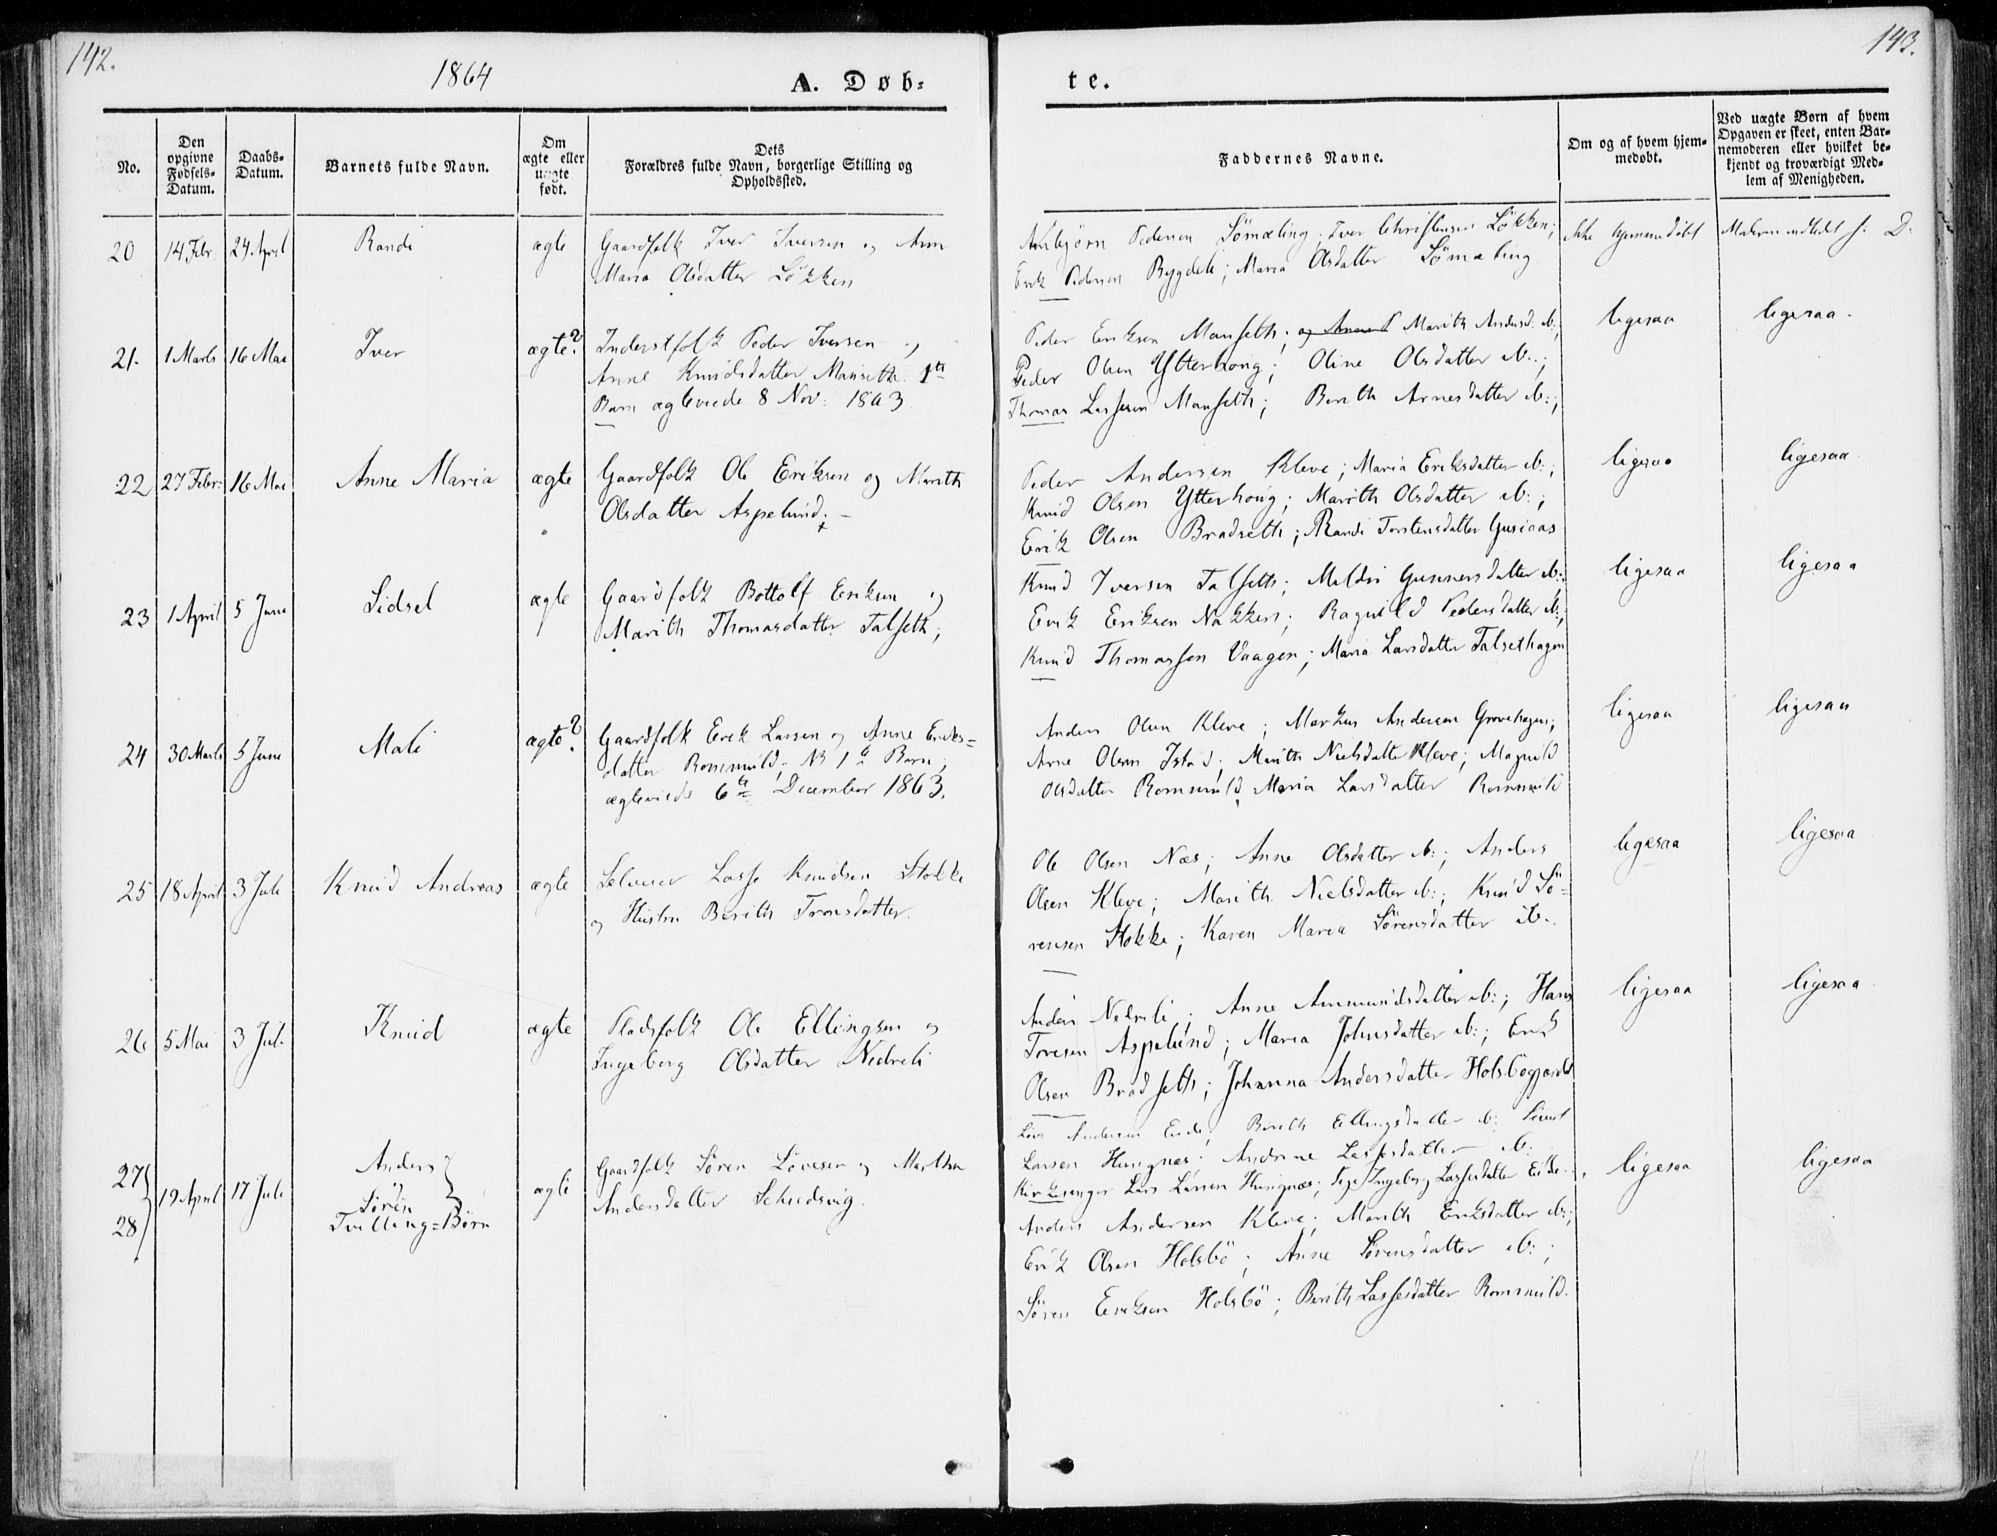 142.
1864
A. Døb-
te.
143.
No.
Den
opgivne
Fødsels-
Datum.
Daabs-
Datum.
Barnets fulde Navn.
Om
ægte eller
uægte
født.
Dets
Forældres fulde Navn, borgerlige Stilling og
Opholdssted.
Faddernes Navne.
Om og af hvem hjem-
medøbt.
Ved uægte Børn af hvem
Opgaven er skeet, enten Bar-
nemoderen eller hvilket be-
kjendt og troværdigt Med-
lem af Menigheden.
20 14 Febr. 24 April Randi ægte
Gaardfolk Iver Iversen og Ann
Maria Olsdatter Løkken
Pedersen Sømæling; Iver Christensen Løkken;
Erik Pedersen Bygdeli; Maria Olsdatter Sømæling
ikke hjemmedøbt
21. 1 Marts 16 Mai Iver ægte?
Inderstfolk Peder Iversen og
Anne Knudsdatter Manseth. 1te
Barn ægteviede 8 Nov: 1863.
Peder Eriksen Manseth; og Anne Marith Andersd. ib:;
Peder Olsen Ytterhoug; Oline Olsdatter ib:;
Thomas Lassesen Manseth; Berith Arnesdatter ib:;
ligesaa
ligesaa.
22 27 Febr: 16 Mai Anne Maria ægte
Gaardfolk Ole Eriksen og Marith
Olsdatter Aspelund. -
Peder Andersen Kleve; Maria Eriksdatter ib:;
Knud Olsen Ytterhoug; Marith Olsdatter ib:;
Erik Olsen Bradseth; Randi Torstensdatter Gusiaas
ligesaa
ligesaa
23 1 April 5 June Sidsel ægte
Gaardfolk Bottolf Eriksen og
Marith Thomasdatter Talseth;
Knud Iversen Talseth; Meldri Gunnersdatter ib:;
Erik Eriksen Nakken; Ragnild Pedersdatter ib:;
Knud Thomassen Vaagen; Maria Larsdatter Talsethagen
ligesaa
ligesaa
24 30 Marts 5 June Mali ægte?
Gaardfolk Erik Larsen og Anne Eriks-
datter Romsmuld; NB 1te Barn;
ægteviede 6te December 1863.
Anders Olsen Kleve; Markus Andersen Grovehagen;
Arne Olsen Istad; Marith Nielsdatter Kleve; Magnild
Olsdatter Romsmuld, Maria Larsdatter Romsmuld
ligesaa
ligesaa
25 18 April 3 Juli Knud Andreas ægte
Selveier Lasse Knudsen Stokke
og Hustru Berith Tronsdatter.
Ole Olsen Næs; Anne Olsdatter ib:; Anders
Olsen Kleve; Marith Nielsdatter ib:; Knud Sø-
rensen Stokke; Karen Maria Sørensdatter ib:.
ligesaa
ligesaa
26 5 Mai 3 Juli Knud ægte
Pladsfolk Ole Ellingsen og
Ingeborg Olsdatter Nedreli
Anders Nedreli; Anne Ammundsdatter ib:; Hans
Toresen Aspelund; Maria Johnsdatter ib:; Erik
Olsen Bradseth; Johanna Andersdatter Holsbøgjerdet
ligesaa
ligesaa
27
28
19 April 17 Juli
Anders
og
Søren
Tvilling-Børn
ægte
Gaardfolk Søren Sørensen og Martha
Andersdatter
Andersen Eide; Berith Ellingsdatter ib: Sivert
Larsen Hungnæs; Andrine Lassesdatter ib:
Kirkesanger Lars Larsen Hungnæs; Pige Ingeborg Lassesdatter Eide
Anders Andersen Kleve; Marith Eriksdatter ib:;
Erik Olsen Holsbø; Anne Sørensdatter ib:;
Søren Eriksen Holsbø; Berith Lassesdatter Romsmuld.
ligesaa
ligesaa